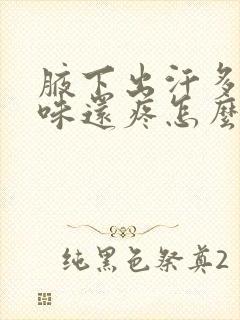 腋下出汗多
味還疼怎麼
純黑色祭奠2